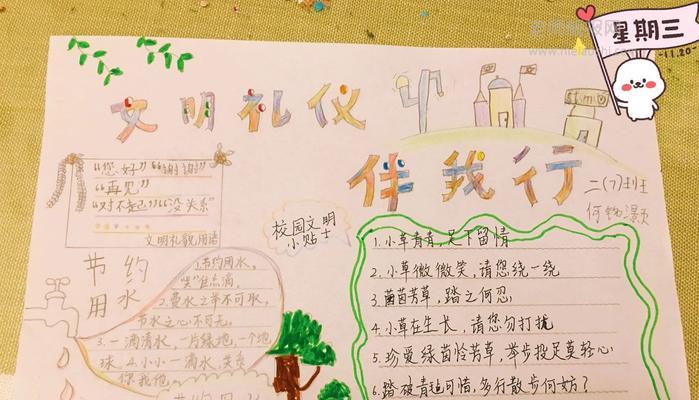 星期三
-11.20-
文明礼仪
伴我行
二(7)班
"您好""谢谢"
"再见"
"对不起""没关系"
文明礼貌用语
校园文明
小贴士
节约
用水
1.节约用水,
2.爱水之举不可取,
节水之心不可无。
3.一滴清水,一片绿地,一个地
球。4.小小一滴水,
你我他,
1.小草青青,足下留情
2.小草微微笑,请您绕一绕
3.茵茵芳草,踏之何忍
4.小草在生长,请您勿打扰
5.珍爱绿茵怜芳草,举步投足莫轻心
6.踏破青毡可惜,多行散步何妨?